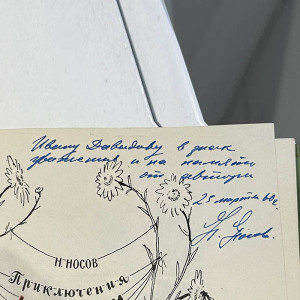 Ивану Давыдову в знак
уважения и на память
от автора
25 марта 60г.
Н. Носов.
Н. НОСОВ
Приключения